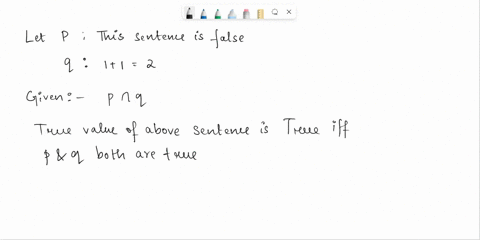 Let P : This sentence is false
q : 1+1 = 2
Given:- p ∩ q
True value of above sentence is True iff
p & q both are true